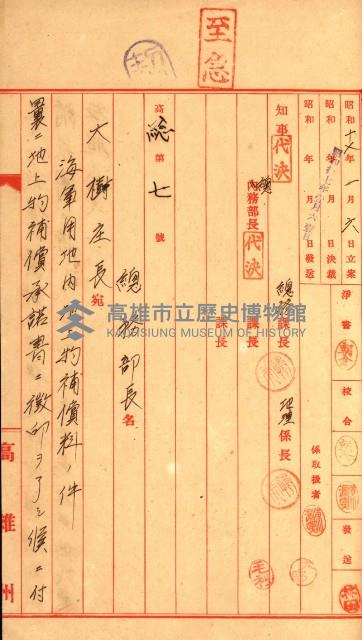 至急
昭和十七年一月六日立案
昭和 年 月 日決裁
昭和 年 月 日發送
淨書
校合
發送
係取扱者
知事 代決
總務部長 代決
內務部長
總務課長
課長
課長
地理係長
高總第七號
總務部長名
大樹庄長宛
海軍用地內地上物補償料ノ件
曩ニ地上物補償承諾書ニ徵印ヲ了シ候ニ付
高雄州
高雄市立歷史博物館
KAOHSIUNG MUSEUM OF HISTORY